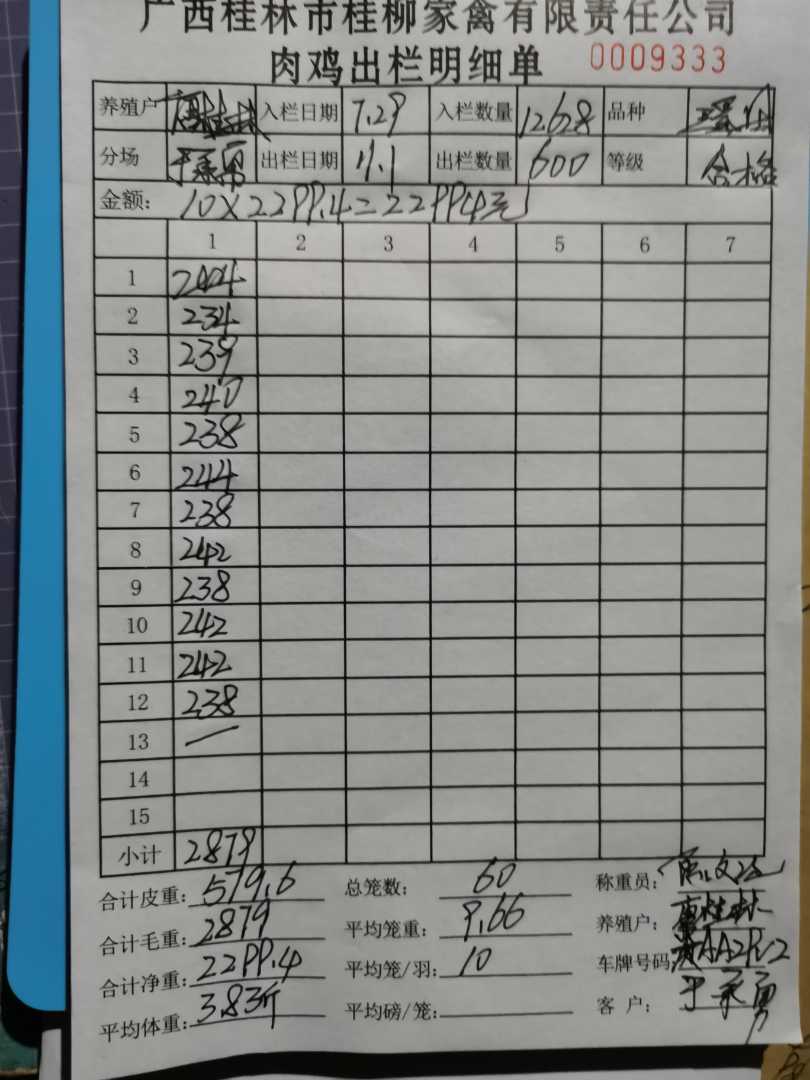 广西桂林市桂柳家禽有限责任公司
肉鸡出栏明细单 0009333
养殖户 唐桂林 入栏日期 7.29 入栏数量 12628 品种
分场 出栏日期 11.1 出栏数量 600 等级 合格
金额: 10×2299.4=22994元
1 2 3 4 5 6 7
1 244
2 234
3 239
4 240
5 238
6 244
7 238
8 242
9 238
10 242
11 242
12 238
13 —
14
15
小计 2879
合计皮重: 579.6 总笼数: 60 称重员:
合计毛重: 2879 平均笼重: 9.66 养殖户: 唐桂林
合计净重: 2299.4 平均笼/羽: 10 车牌号码
平均体重: 3.83斤 平均磅/笼: 客 户: